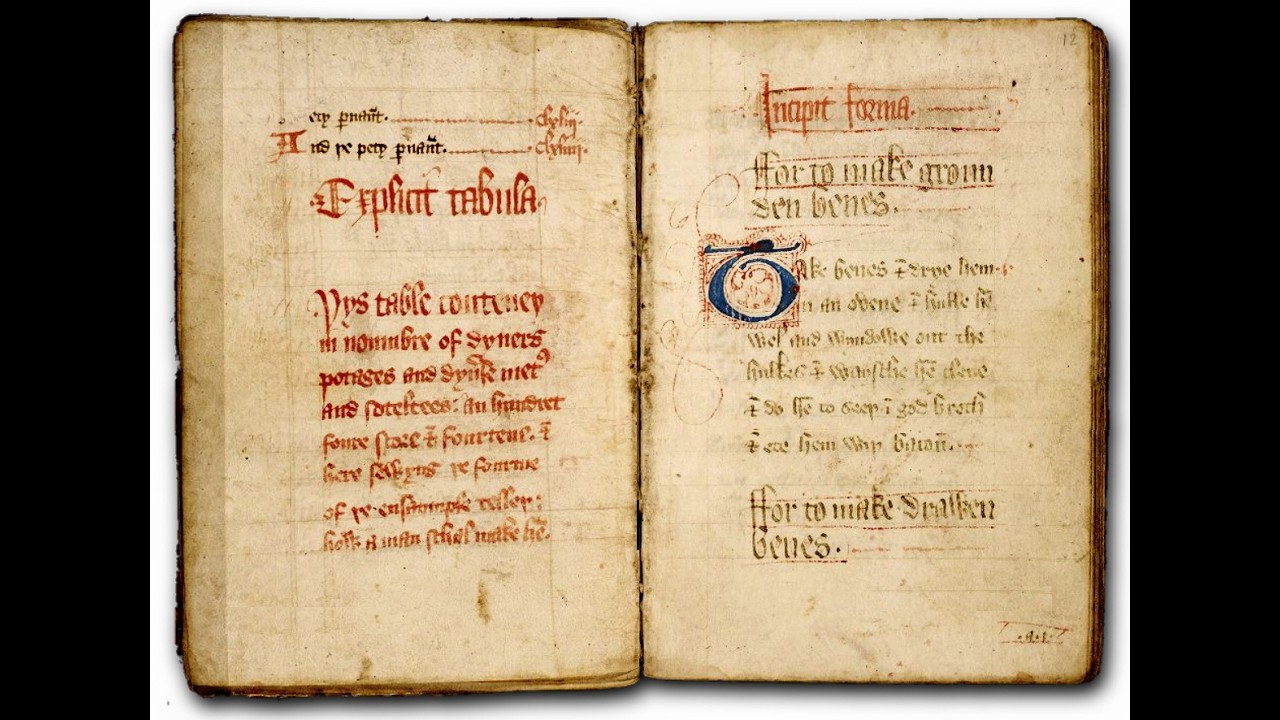 ety puant. clxliij.
And þe pety puant. clxliiij.
Explicit tabula.
Þys table conteney
in noumbre of dyuers
potages and dyuse met
and soteltees: an hundret
foure score & fourtene. &
here folwyng þe fourme
of þe ensaumple tellеþ:
how a man schal make hē.
12
Incipit forma.
ffor to make groun
den benes.
Take benes & drye hem
in an ovene & hulle hē
wel and wyndowe out the
hulkes & waysche hē clene
& do hē to seeþ ī god broth
& ete hem wiþ bacon.
ffor to make drawen
benes.